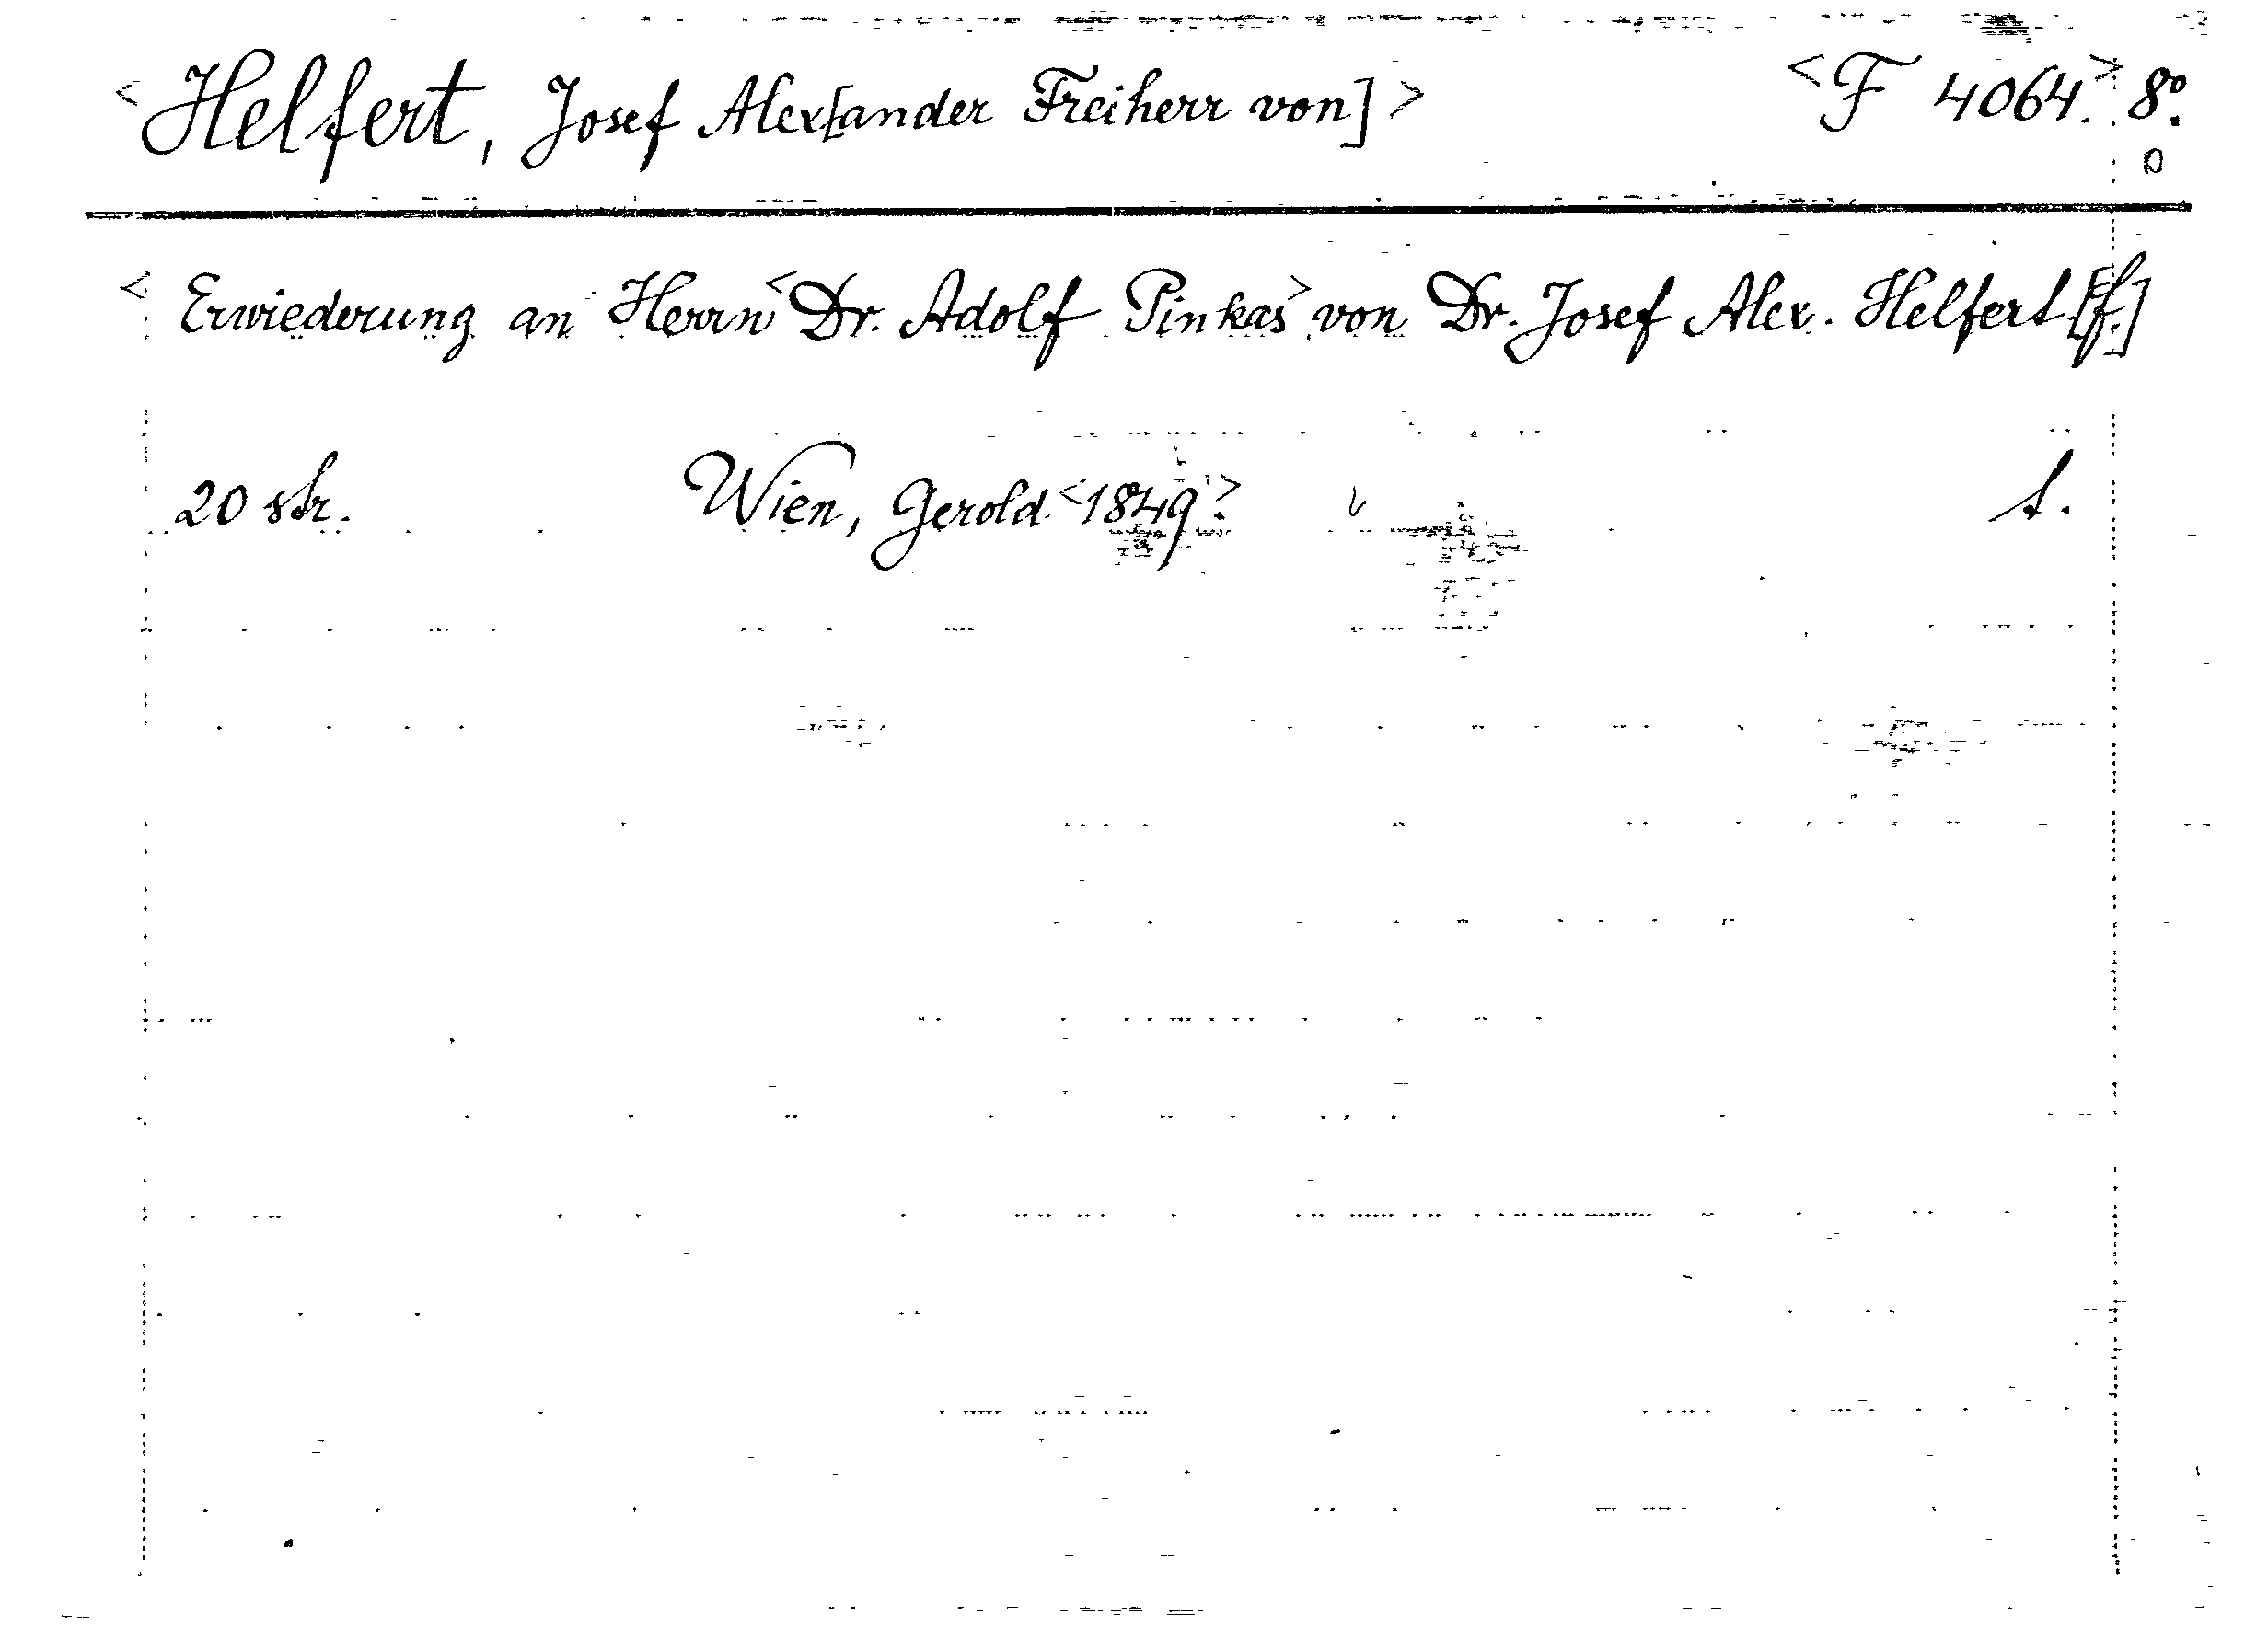 <Helfert, Josef Alex[ander Freiherr von]> <F 4064.> 8°.
0
< Erwiederung an Herrn <Dr. Adolf Pinkas> von Dr. Josef Alex. Helfert [f.]
20 str. Wien, Gerold <1849.>